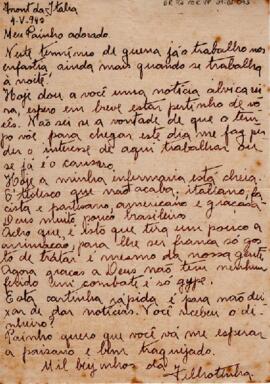 Front da Italia
4-V-945
Meu Painho adorado.
Neste termino de guerra já o trabalho nos
enfastia, ainda mais quando se trabalha
à noite.
Hoje dou a você uma noticia, alvicarei
ra, espero em breve estar pertinho de vo
cês. Não sei se a vontade de que o tem
po vôe para chegar este dia me faz per
der o interesse de aqui trabalhar ou
se já é o cansaço.
Hoje a minha enfermaria está cheia.
É tedesco que não acaba, italiano, fa
cista e partisano, americano e graças a
Deus muito pouco brasileiro.
Acho que é isto que tira um pouco a
animação, para lhe ser franca só gos
to de tratar é mesmo da nossa gente.
Agora graças a Deus não tem nenhum
ferido em combate é só gripe.
Esta cartinha rápida é para não dei
xar de dar noticias. Você recebeu o di
nheiro?
Painho quero que você vá me esperar
a paisano e bem traquejado.
Mil beijinhos da
Filhotinha.